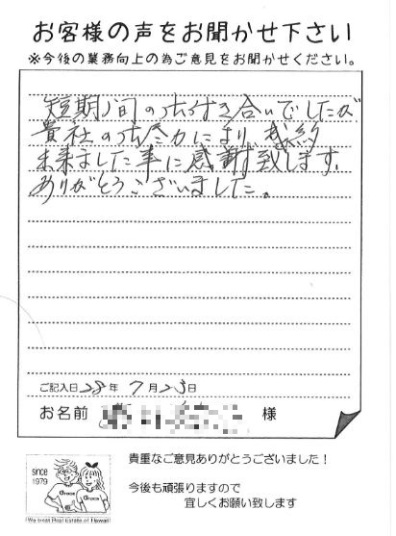 お客様の声をお聞かせ下さい
※今後の業務向上の為ご意見をお聞かせください。
短期間のお付き合いでしたが
貴社のお尽力により、成約
出来ました事に感謝致します。
ありがとうございました。
ご記入日 28年 7月23日
お名前 様
since
1979
貴重なご意見ありがとうございました！
今後も頑張りますので
宜しくお願い致します